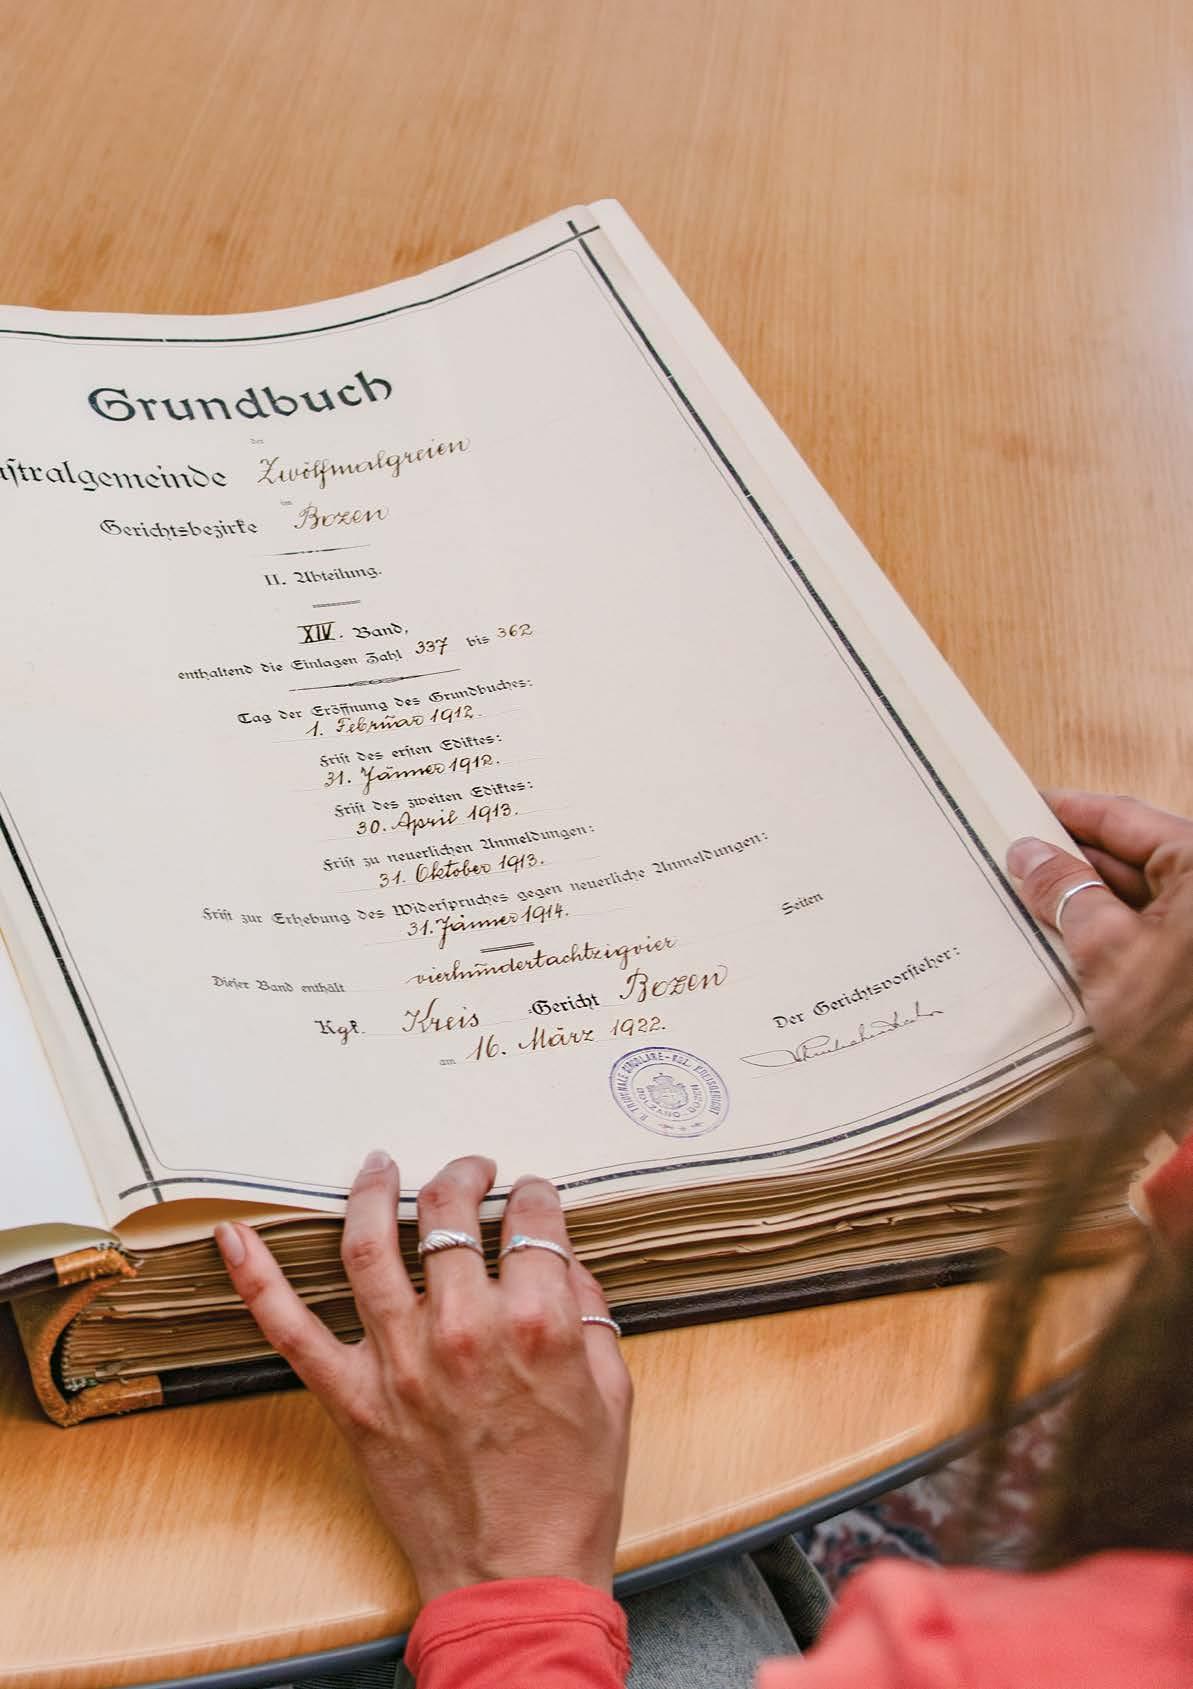 Grundbuch
der
astralgemeinde Zwölfmalgreien
im
Gerichtsbezirke Bozen
II. Abteilung.
XIV. Band,
enthaltend die Einlagen Zahl 337 bis 362
Tag der Eröffnung des Grundbuches:
1. Februar 1912.
Frist des ersten Ediktes:
31. Jänner 1912.
Frist des zweiten Ediktes:
30. April 1913.
Frist zu neuerlichen Anmeldungen:
31. Oktober 1913.
Frist zur Erhebung des Widerspruches gegen neuerliche Anmeldungen:
31. Jänner 1914.
Dieser Band enthält vierhundertachtzigvier Seiten
Kgl. Kreis -Gericht Bozen
am 16. März 1922.
Der Gerichtsvorsteher:
R. TRIBUNALE CIRCOLARE - KGL. KREISGERICHT
BOLZANO - BOZEN